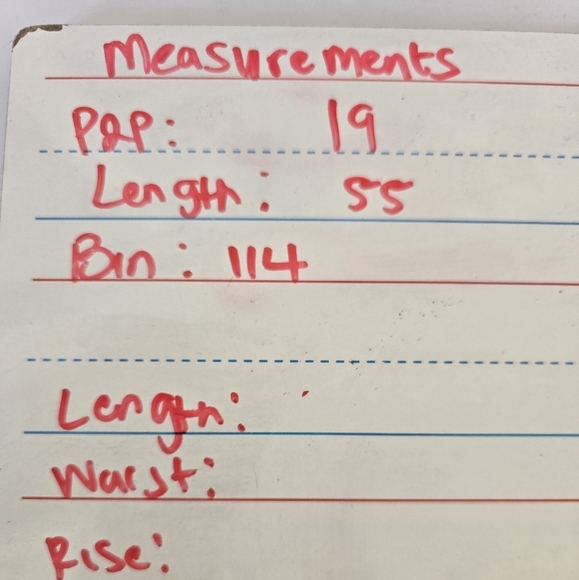 Measurements
P2P: 19
Length: 55
Bin: 114
Length:
Waist:
Rise: